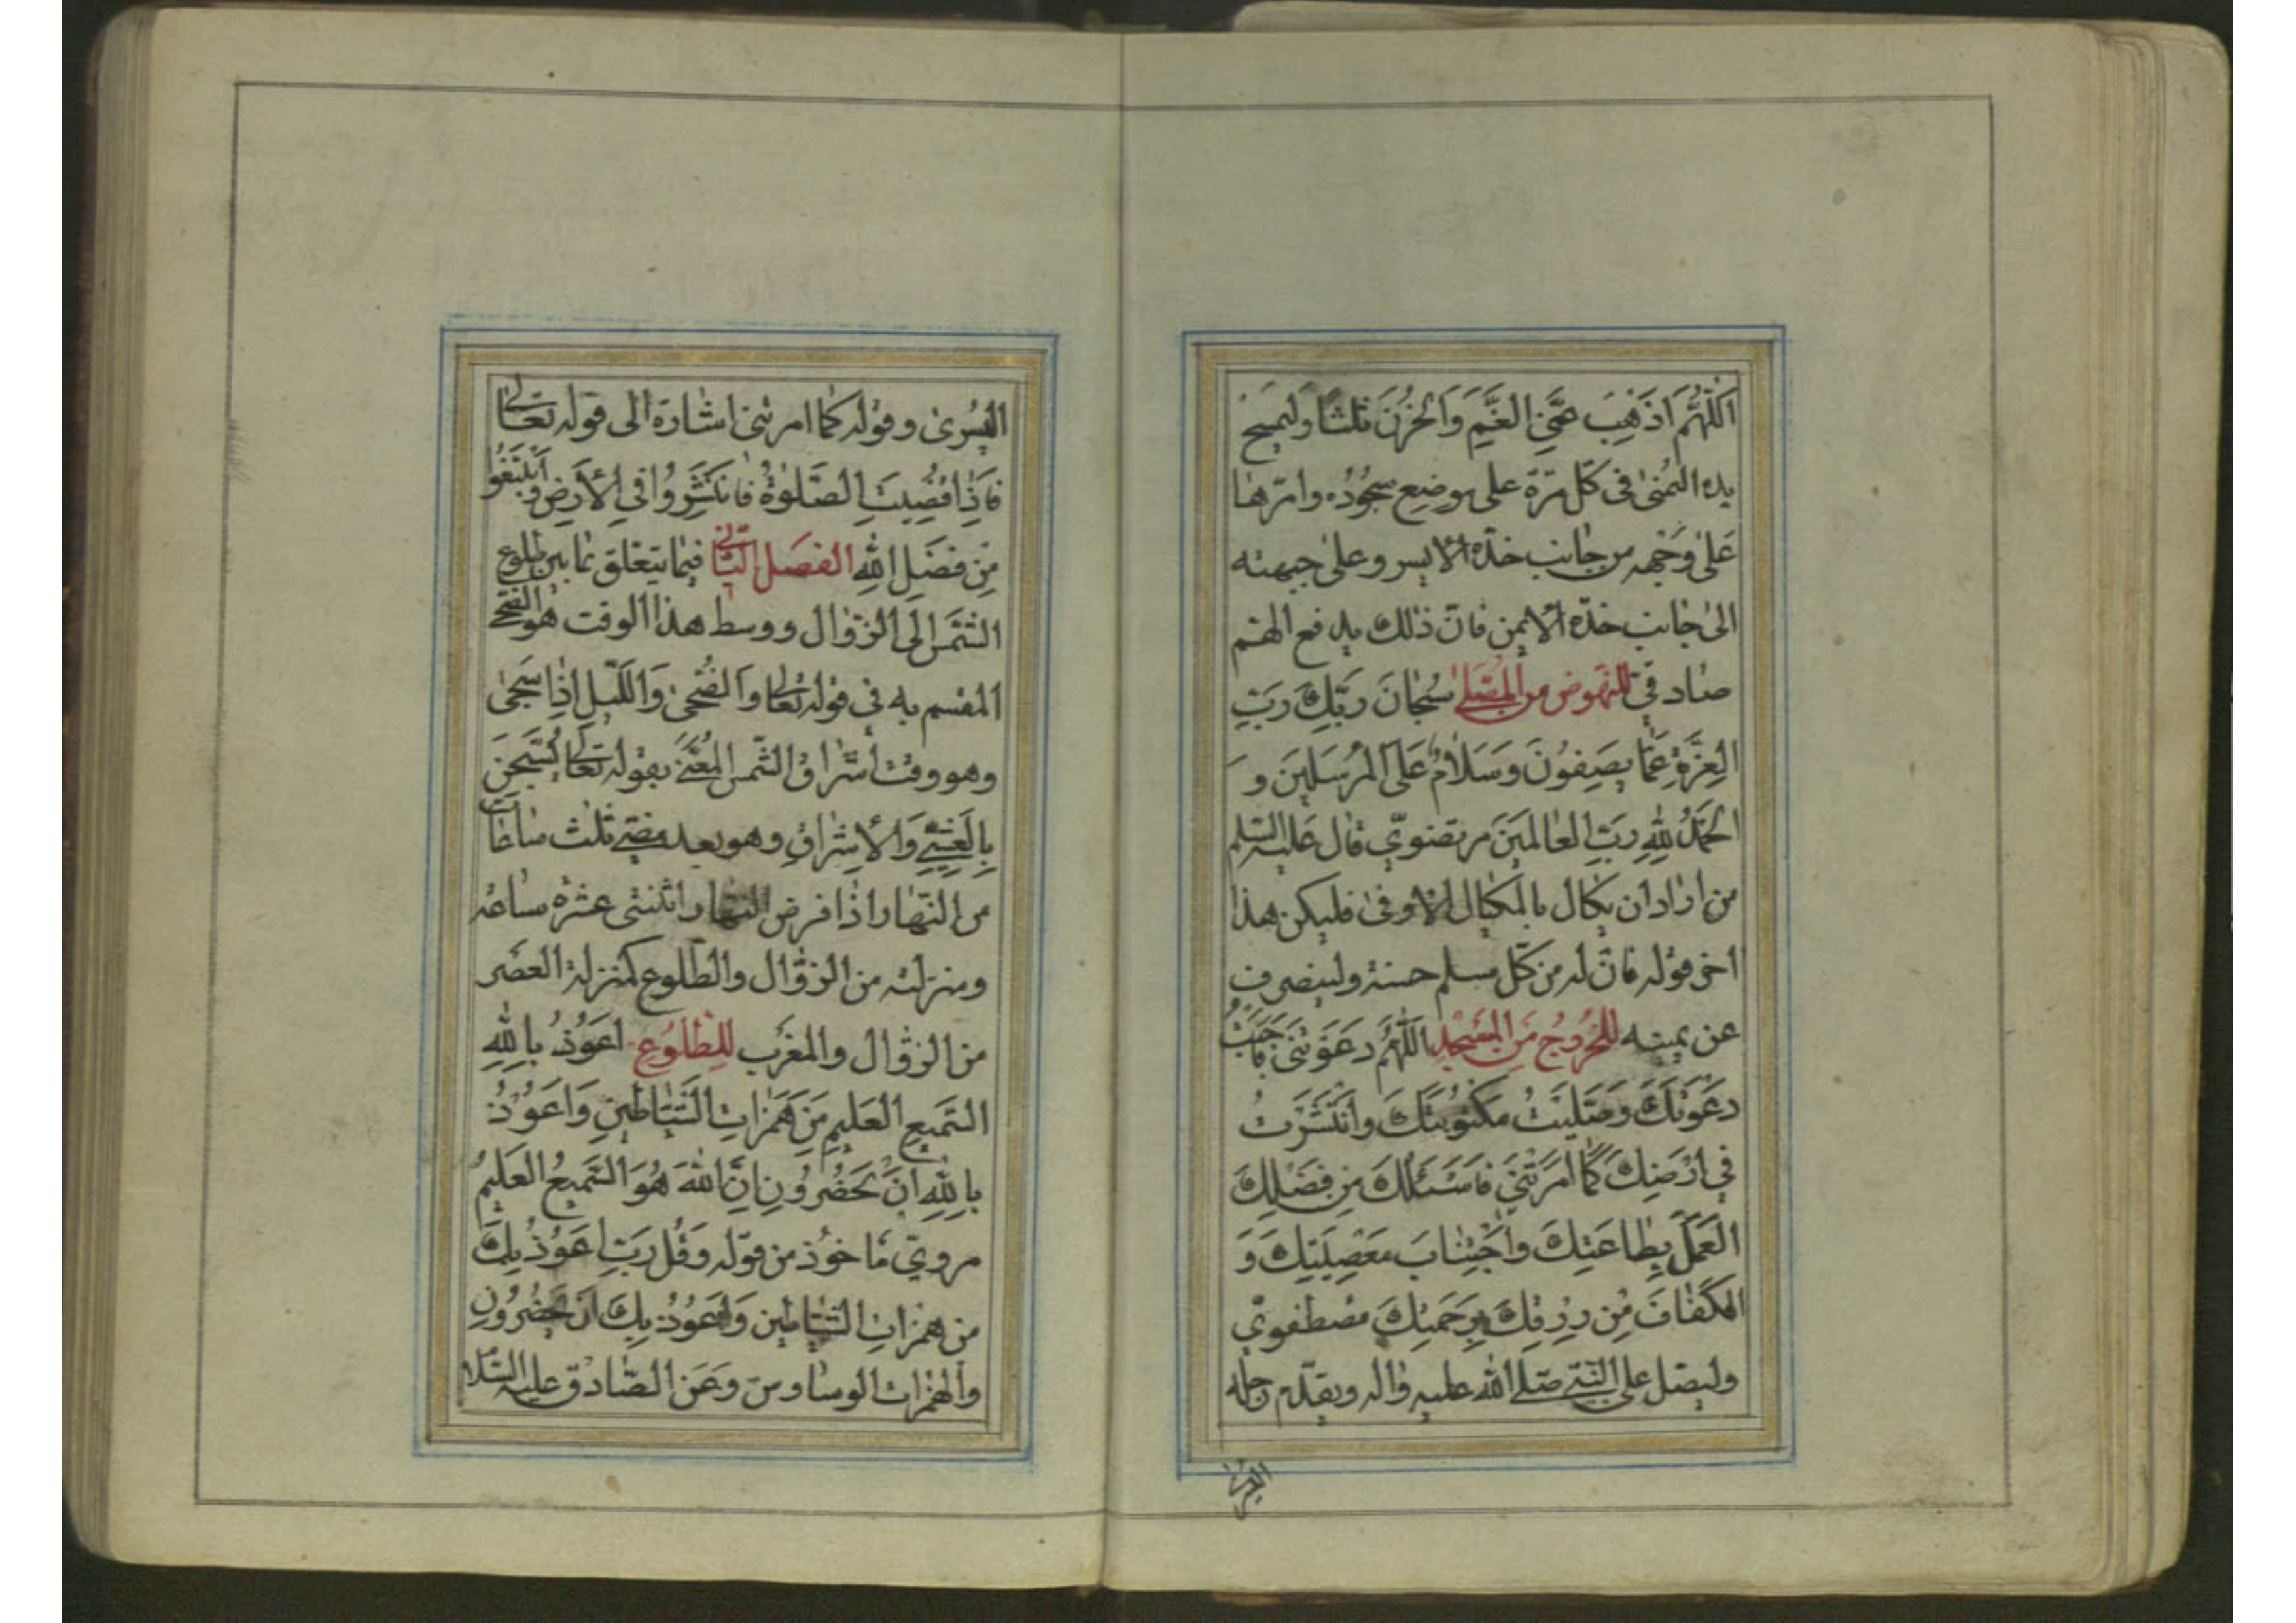 اَللّٰهُمَّ اَذْهِبْ عَنِّي الْغَمَّ وَالْحُزْنَ ثلثًا وليمسح
يده اليمنى فى كلّ مرّة على موضع سجوده وامرّها
على وجهه من جانب خدّه الايسر وعلى جبهته
الى جانب خدّه الايمن فانّ ذلك يدفع الهمّ
صادقيّ للنهوض من المصلّى سُبْحٰانَ رَبِّكَ رَبِّ
الْعِزَّةِ عَمّٰا يَصِفُونَ وَسَلاٰمٌ عَلَى الْمُرْسَلِينَ وَ
الْحَمْدُ لِلّٰهِ رَبِّ الْعٰالَمِينَ مرتضويّ قال عليه السّلم
من اراد ان يكال بالمكيال الاوفى فليكن هذا
اخر قوله فانّ له من كلّ مسلم حسنة ولينصرف
عن يمينه للخروج من المسجد اَللّٰهُمَّ دَعَوْتَنِي فَاَجَبْتُ
دَعْوَتَكَ وَصَلَّيْتُ مَكْتُوبَتَكَ وَانْتَشَرْتُ
فِي اَرْضِكَ كَمٰا اَمَرْتَنِي فَاَسْئَلُكَ مِنْ فَضْلِكَ
الْعَمَلَ بِطٰاعَتِكَ وَاجْتِنٰابَ مَعْصِيَتِكَ وَ
الْكَفٰافَ مِنْ رِزْقِكَ بِرَحْمَتِكَ مصطفويّ
وليصلّ على النّبىّ صلّى الله عليه واله ويقدّم رجله
اليسرى
اليسرى وقوله كما امرتنى اشارة الى قوله تعالى
فَاِذٰا قُضِيَتِ الصَّلٰوةُ فَانْتَشِرُوا فِي الْاَرْضِ وَابْتَغُوا
مِنْ فَضْلِ اللهِ الفصل الثّانى فيما يتعلق بما بين طلوع
الشّمس الى الزّوال ووسط هذا الوقت هو الضّحى
المقسم به فى قوله تعالى وَالضُّحىٰ وَاللَّيْلِ اِذٰا سَجىٰ
وهو وقت اشراق الشّمس المعنىّ بقوله تعالى يُسَبِّحْنَ
بِالْعَشِيِّ وَالْاِشْرٰاقِ وهو بعد مضىّ ثلث ساعات
من النّهار اذا فرض النّهار اثنتى عشرة ساعة
ومنزلته من الزّوال والطّلوع كمنزلة العصر
من الزّوال والمغرب للطّلوع اَعُوذُ بِاللّٰهِ
السَّمِيعِ الْعَلِيمِ مِنْ هَمَزٰاتِ الشَّيٰاطِينِ وَاَعُوذُ
بِاللّٰهِ اَنْ يَحْضُرُونِ اِنَّ اللهَ هُوَ السَّمِيعُ الْعَلِيمُ
مرويّ ماخوذ من قوله وَقُلْ رَبِّ اَعُوذُ بِكَ
مِنْ هَمَزٰاتِ الشَّيٰاطِينِ وَاَعُوذُ بِكَ اَنْ يَحْضُرُونِ
والهمزات الوساوس وعن الصّادق عليه السّلام